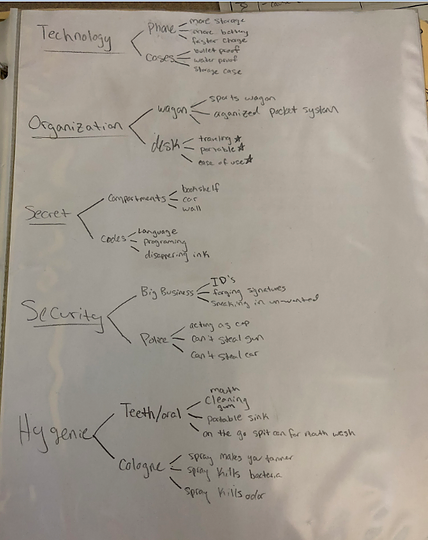 Technology
Phone
more storage
more battery
faster charge
cases
bullet proof
water proof
storage case
Organization
wagon
sports wagon
organized pocket system
desk
traveling ★
portable ★
ease of use ★
Secret
Compartments
bookshelf
car
wall
Codes
Language
programing
disappering ink
Security
Big Business
ID's
forging signatures
Sneaking in un-wanted
Police
acting as cop
can't steal gun
can't steal car
Hygenie
Teeth/oral
mouth
cleaning
gum
portable sink
on the go spit can for mouth wash
Cologne
spray makes you tanner
spray kills bacteria
spray kills odor